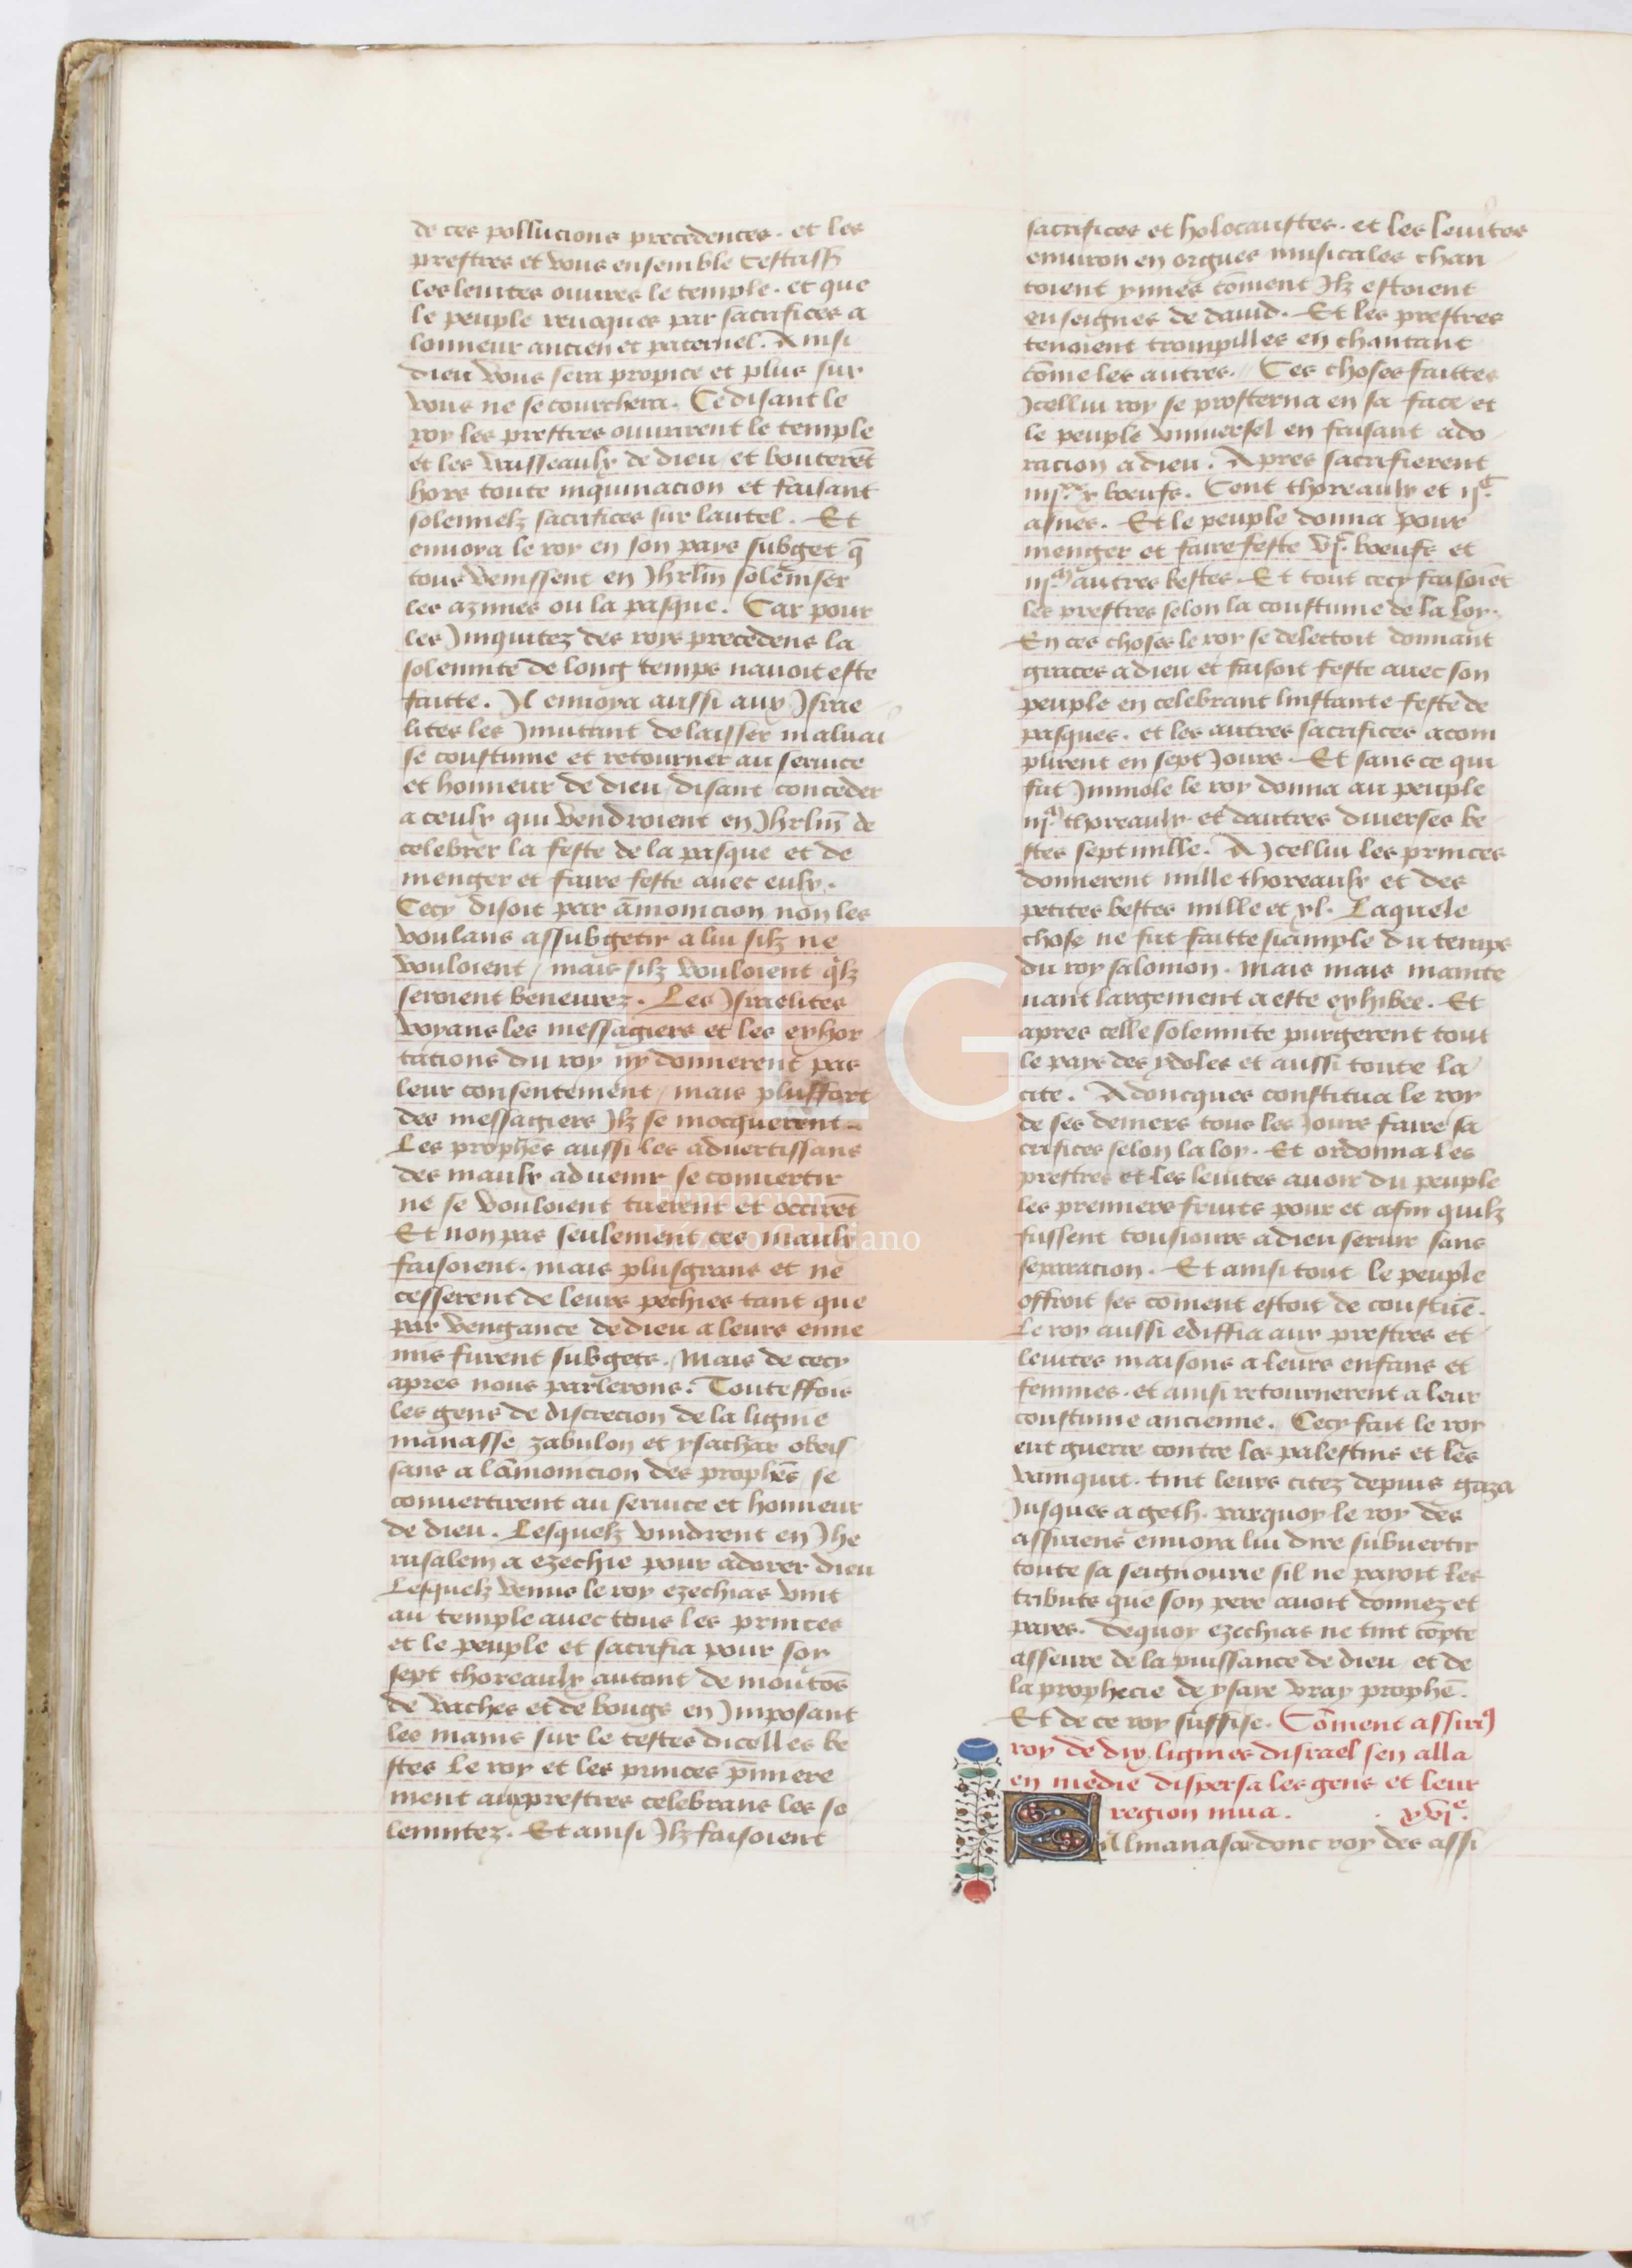 de ces pollucions precedences. et les
prestres et vous ensemble
les leuites ouures le temple. et que
le peuple reuocques par sacrifices a
lonneur ancien et paternel. Ainsi
dieu vous sera propice et plus sur
vous ne se courchera. Ce disant le
roy les prestres ouurirent le temple
et les vaisseaulx de dieu et bouterēt
hors toute inquinacion et faisant
solennelz sacrifices sur lautel. Et
enuoya le roy en son pays subget q̄
tous venissent en Jhrl̄m solēmser
les azimes ou la pasque. Car pour
les Jniquitez des roys precedens la
solennite de long temps nauoit este
faitte. Jl enuoya aussi aux Jsrae
lites les Jnuitant delaisser maluai
se coustume et retourner au seruice
et honneur de dieu disant conceder
a ceulx qui vendroient en Jhrl̄m de
celebrer la feste de la pasque et de
menger et faire feste auec eulx.
Cecy disoit par āmonicion non les
voulans assubgetir a lui silz ne
vouloient / mais silz vouloient qlz
seroient beneurez. Les Jsraelites
voyans les messagiers et les exhor
tacions du roy ny donnerent pas
leur consentement / mais plussort
des messagiers Jlz se mocquerent
Les prophēs aussi les aduertissans
des maulx aduenir se conuertir
ne se vouloient tuerent et occirēt
Et non pas seulement ces maulx
faisoient. mais plusgrans et ne
cesserent de leurs pechies tant que
par vengance de dieu a leurs enne
mis furent subgets. Mais de cecy
apres nous parlerons. Touteffois
les gens de discrecion de la lignie
manasse zabulon et ysachar obeis
sans a lāmonicion des prophēs se
conuertirent au seruice et honneur
de dieu. Lesquelz vindrent en Jhe
rusalem a ezechie pour adorer dieu
Lesquelz venus le roy ezechias vint
au temple auec tous les princes
et le peuple et sacrifia pour soy
sept thoreaulx autant de moutōs
de vaches et de bougs en Jmposant
les mains sur le testes dicelles be
stes Le roy et les princes p̄miere
ment auxprestres celebrans les so
lennitez. Et ainsi Jlz faisoient
sacrifices et holocaustes. et les leuites
enuiron en orgues musicales chan
toient ynnes cōment Jlz estoient
enseignes de dauid. Et les prestres
tenoient trompilles en chantant
cōme les autres. Ces choses faittes
Jcellui roy se prosterna en sa face et
le peuple vniuersel en faisant ado
racion a dieu. Apres sacrifierent
iiij.xx x boeufs. Cent thoreaulx et ij.c
asnes. Et le peuple donna pour
menger et faire feste vj.c boeufs et
iij.m autres bestes. Et tout cecy faisoiēt
les prestres selon la coustume de la loy.
En ces choses le roy se delectoit donnant
graces a dieu et faisoit feste auec son
peuple en celebrant linstante feste de
pasques. et les autres sacrifices acom
plirent en sept Jours. Et sans ce qui
fut Jmmole le roy donna au peuple
ij.m thoreaulx et dautres diuerses be
stes sept mille. A Jcellui les princes
donnerent mille thoreaulx et des
petites bestes mille et xl. Laquele
chose ne fut faitte siample du temps
du roy salomon. Mais mais mainte
nant largement a este exhibee. Et
apres celle solennite purgerent tout
le pays des ydoles et aussi toute la
cite. Adoncques constitua le roy
de ses deniers tous les Jours faire sa
crifices selon la loy. Et ordonna les
prestres et les leuites auoir du peuple
les premiers fruits pour et afin quilz
fussent tousiours a dieu seruir sans
separacion. Et ainsi tout le peuple
offroit ses cōment estoit de coustūe.
Le roy aussi ediffia aux prestres et
leuites maisons a leurs enfans et
femmes. et ainsi retournerent a leur
coustume ancienne. Cecy fait le roy
eut guerre contre les palestins et les
vainquit. tint leurs citez depuis gaza
Jusques a geth. parquoy le roy des
assiriens enuoya lui dire subuertir
toute sa seignourie sil ne payoit les
tributs que son pere auoit donnez et
payes. dequoy ezechias ne tint cōpte
asseure de la puissance de dieu et de
la prophecie de ysaye vray prophē.
Et de ce roy suffise. Cōment assiri9
roy de dix lignies disrael sen alla
en medie dispersa les gens et leur
region mua. xvj.e
Salmanasar donc roy des assi
Fundación
Lázaro Galdiano
FLG